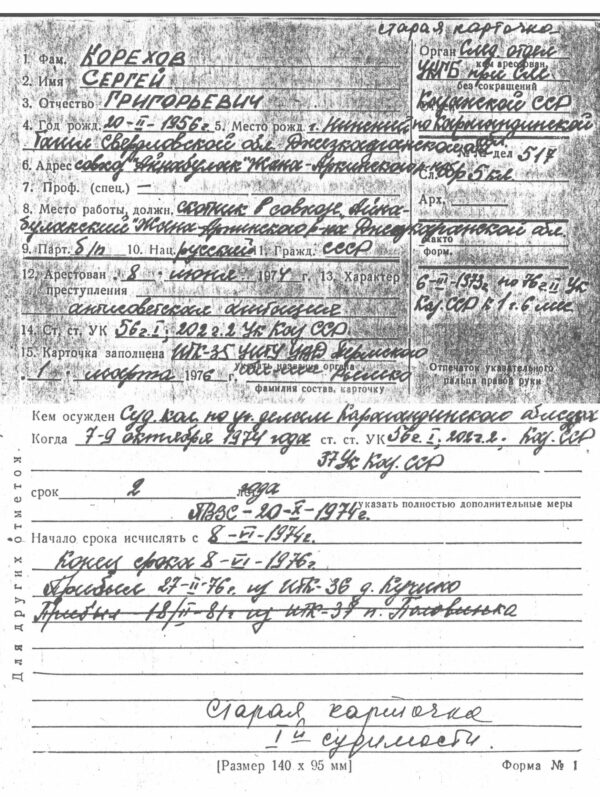 старая карточка
1. Фам. КОРЕХОВ
2. Имя СЕРГЕЙ
3. Отчество ГРИГОРЬЕВИЧ
4. Год рожд. 20-II-1956 г 5. Место рожд. г. Нижний
Тагил Свердловской обл.
6. Адрес совхоз "Айнабулак" Жана-Аркинского р-на
Джезказганской обл.
7. Проф. (спец.) —
8. Место работы, должн. скотник в совхозе, Айна-
булакский Жана-Аркинского р-на Джезказганской обл.
9. Парт. б/п 10. Нац. русский 11. Гражд. СССР
12. Арестован "8" июня 1974 г. 13. Характер
преступления
антисоветская агитация
14. Ст. ст. УК 56 г. I, 202 г. 2 Ук Каз ССР.
15. Карточка заполнена ИТК-35 УИТУ УВД Пермского
указать название органа
"1" марта 1976 г.
фамилия состав. карточку
Орган След отдел
кем арестован
УКГБ при СМ.
без сокращений
Казахской ССР
по Карагандинской
обл.
№ № дел 517
Сл.
Арх.
форм.
6-III-1973г. по 76 г. II Ук
Каз. ССР к 1 г. 6 мес
Отпечаток указательного
пальца правой руки
Кем осужден Суд. кол. по уг. делам Карагандинского облсуда
Когда 7-9 октября 1974 года ст. ст. УК 56 г. I, 202 г. 2; Каз. ССР
37 Ук Каз. ССР
срок 2 года
ПВЗС-20-X-1974г.
указать полностью дополнительные меры
Начало срока исчислять с 8-VI-1974г.
Конец срока 8-VI-1976г.
Прибыл 27-II-76г. из ИТК-36 д. Кучино
Прибыл 18/III-81г из ИТК-37 п. Половинка
Для других отметок
Старая карточка
I й судимости.
[Размер 140 х 95 мм] Форма № 1